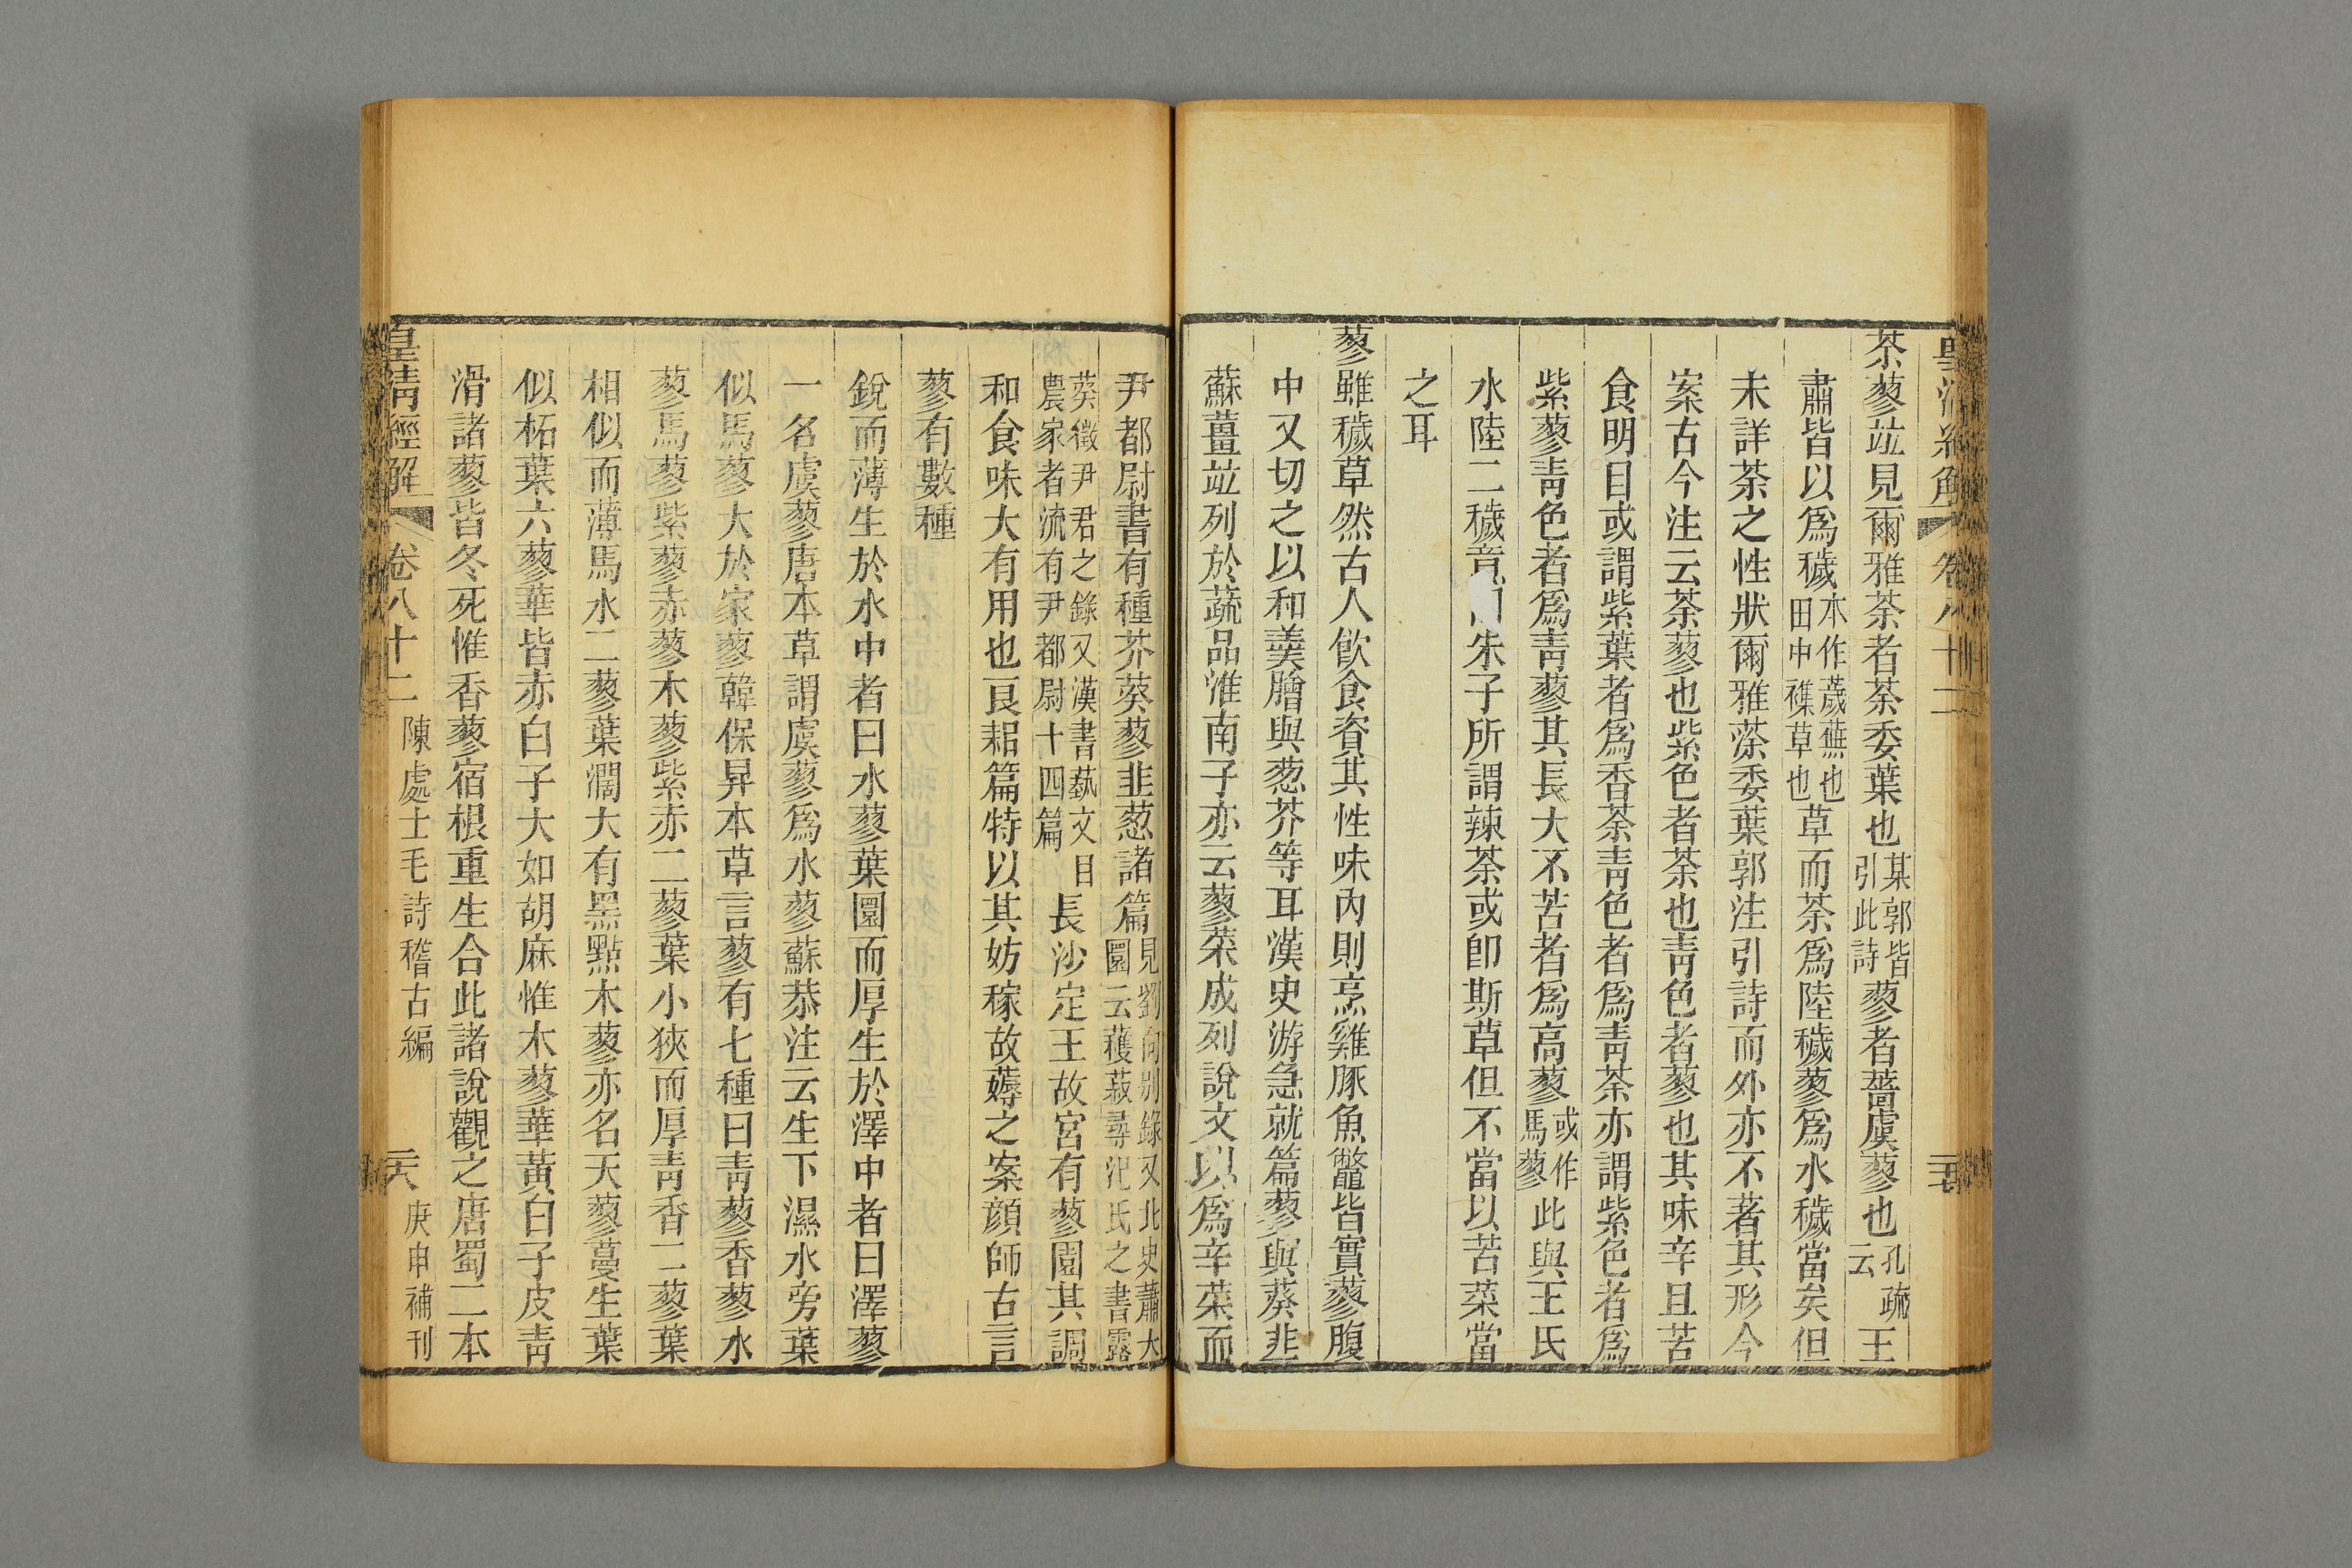 皇清經解 卷八十二
荼蓼竝見爾雅荼者荼委葉也某郭皆引此詩蓼者薔虞蓼也孔疏云王
肅皆以爲穢本作薉蕪也田中襍草也草而荼爲陸穢蓼爲水穢當矣但
未詳荼之性狀爾雅蒤委葉郭注引詩而外亦不著其形今
案古今注云荼蓼也紫色者荼也靑色者蓼也其味辛且苦
食明目或謂紫葉者爲香荼靑色者爲靑荼亦謂紫色者爲
紫蓼靑色者爲靑蓼其長大不苦者爲高蓼或作馬蓼此與王氏
水陸二穢竟同朱子所謂辣荼或卽斯草但不當以苦菜當
之耳
蓼雖穢草然古人飮食資其性味內則烹雞豚魚鼈皆實蓼腹
中又切之以和羹膾與葱芥等耳漢史游急就篇蓼與葵韭
蘇薑竝列於蔬品淮南子亦云蓼菜成列說文以爲辛菜而
尹都尉書有種芥葵蓼韭葱諸篇見劉向別錄又北史蕭大圜云穫菽尋氾氏之書露
葵徵尹君之錄又漢書蓺文目農家者流有尹都尉十四篇長沙定王故宮有蓼園其調
和食味大有用也良耜篇特以其妨稼故薅之案顔師古言
蓼有數種
銳而薄生於水中者曰水蓼葉圜而厚生於澤中者曰澤蓼
一名虞蓼唐本草謂虞蓼爲水蓼蘇恭注云生下濕水旁葉
似馬蓼大於家蓼韓保昇本草言蓼有七種曰靑蓼香蓼水
蓼馬蓼紫蓼赤蓼木蓼紫赤二蓼葉小狹而厚靑香二蓼葉
相似而薄馬水二蓼葉濶大有黑點木蓼亦名天蓼蔓生葉
似柘葉六蓼華皆赤白子大如胡麻惟木蓼華黃白子皮靑
滑諸蓼皆冬死惟香蓼宿根重生合此諸說觀之唐蜀二本
皇清經解 卷八十二 陳處士毛詩稽古編 庚申補刊